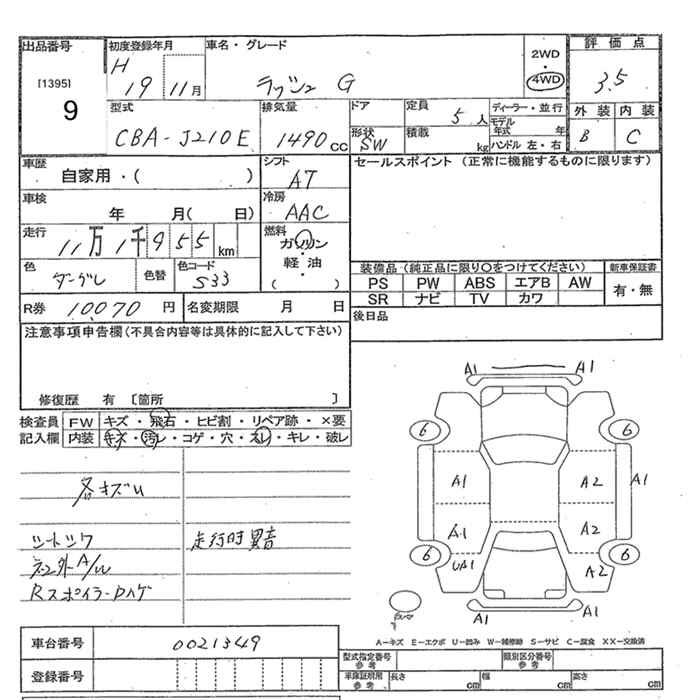 出品番号 初度登録年月 車名・グレード 2WD・4WD 評価点
[1395] H 19 11月 ラッシュ G 3.5
9
型式 排気量 ドア 定員 5人 ディーラー・並行 外装 内装
CBA-J210E 1490cc 形状 SW 積載 kg モデル年式 年 B C
ハンドル 左・右
車歴 シフト セールスポイント (正常に機能するものに限ります)
自家用・( ) AT
車検 冷房
年 月( 日) AAC
走行 燃料
11万1千955km ガソリン・軽油・( )
色 色替 色コード 装備品 (純正品に限り○をつけてください) 新車保証書
ダークグレ S33 PS PW ABS エアB AW 有・無
R券 10070円 名変期限 月 日 SR ナビ TV カワ
注意事項申告欄(不具合内容等は具体的に記入して下さい) 後日品
修復歴 有 [箇所 ]
検査員 FW キズ・飛石・ヒビ割・リペア跡・×要
記入欄 内装 キズ・汚レ・コゲ・穴・スレ・キレ・破レ
A1 A1
6 6
A1 A2 A1
各キズU
A1 A2
走行時異音
6 6
UA1 A2
Rスポイラーハゲ
A1 A1
A-キズ E-エクボ U-凹み W-補修跡 S-サビ C-腐食 XX-交換済
車台番号 0021349
型式指定番号 参考 類別区分番号 参考
登録番号 車庫証明用 参考 長さ cm 幅 cm 高さ cm